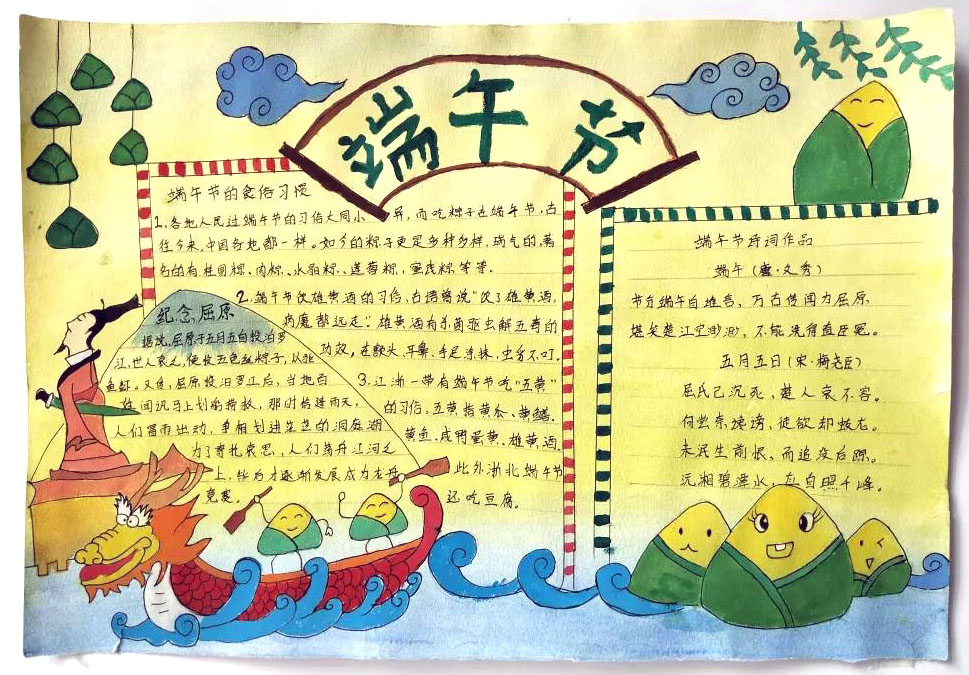 端午节
端午节的食俗习惯
1、各地人民过端午节的习俗大同小异,而吃粽子在端午节,古
往今来,中国各地都一样。如今的粽子更是多种多样,瑞气的,著
名的有桂圆粽、肉粽、水晶粽、莲蓉粽、蜜饯粽等等。
2、端午节饮雄黄酒的习俗,古语曾说"饮了雄黄酒,
病魔都远走"。雄黄酒有杀菌驱虫解五毒的
功效,在额头、耳鼻、手足涂抹,虫豸不叮。
3、江浙一带有端午节吃"五黄"
的习俗。五黄指黄瓜、黄鳝、
黄鱼、咸鸭蛋黄、雄黄酒。
此外浙北端午节
还吃豆腐。
纪念屈原
据说,屈原于五月五自投汨罗
江,世人哀之,便投五色丝粽子,以驱
鱼虾。又传,屈原投汨罗江后,当地百
姓闻讯马上划船捞救,那时恰逢雨天,
人们冒雨出动,争相划进茫茫的洞庭湖
为了寄托哀思,人们荡舟江河之
上,此后才逐渐发展成为龙舟
竞赛。
端午节诗词作品
端午(唐·文秀)
节分端午自谁言,万古传闻为屈原。
堪笑楚江空渺渺,不能洗得直臣冤。
五月五日(宋·梅尧臣)
屈氏已沉死,楚人哀不容。
何尝奈谗谤,徒欲却蛟龙。
未泯生前恨,而追没后踪。
沅湘碧潭水,应自照千峰。